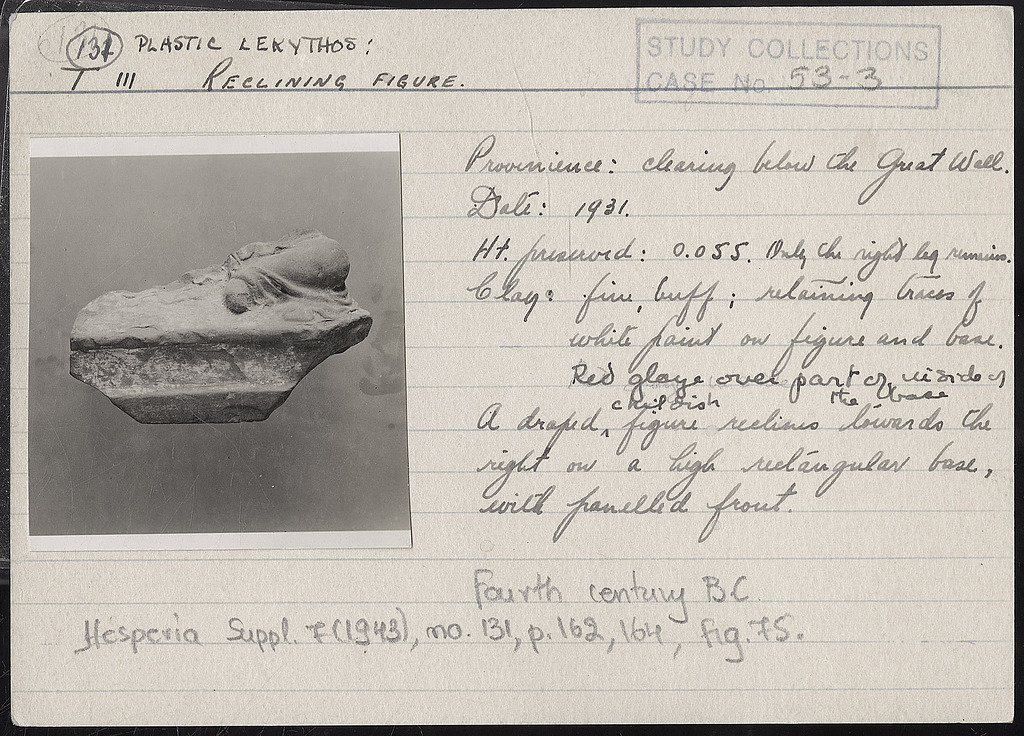 131 PLASTIC LEKYTHOS:
T 111 RECLINING FIGURE.
STUDY COLLECTIONS
CASE No. 53-3
Provinience: clearing below the Great Wall.
Date: 1931.
Ht. preserved: 0.055. Only the right leg remains.
Clay: fine, buff; retaining traces of
white paint on figure and base.
Red glaze over part of inside of
the base
childish
A draped, figure reclines towards the
right on a high rectangular base,
with panelled front.
Fourth century B.C.
Hesperia Suppl. 7 (1943), no. 131, p. 162, 164, fig. 75.